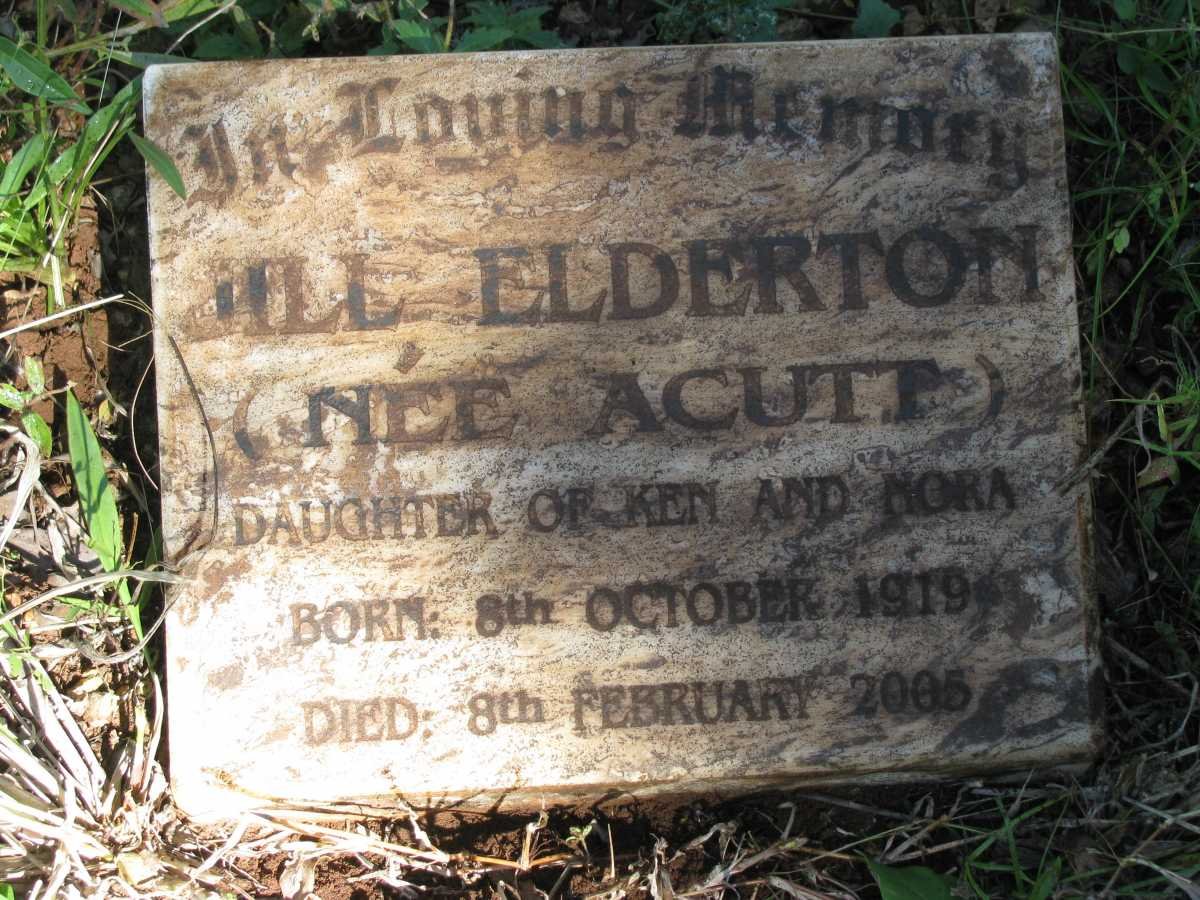 In Loving Memory
JILL ELDERTON
(NÉE ACUTT)
DAUGHTER OF KEN AND NORA
BORN: 8th OCTOBER 1919
DIED: 8th FEBRUARY 2005